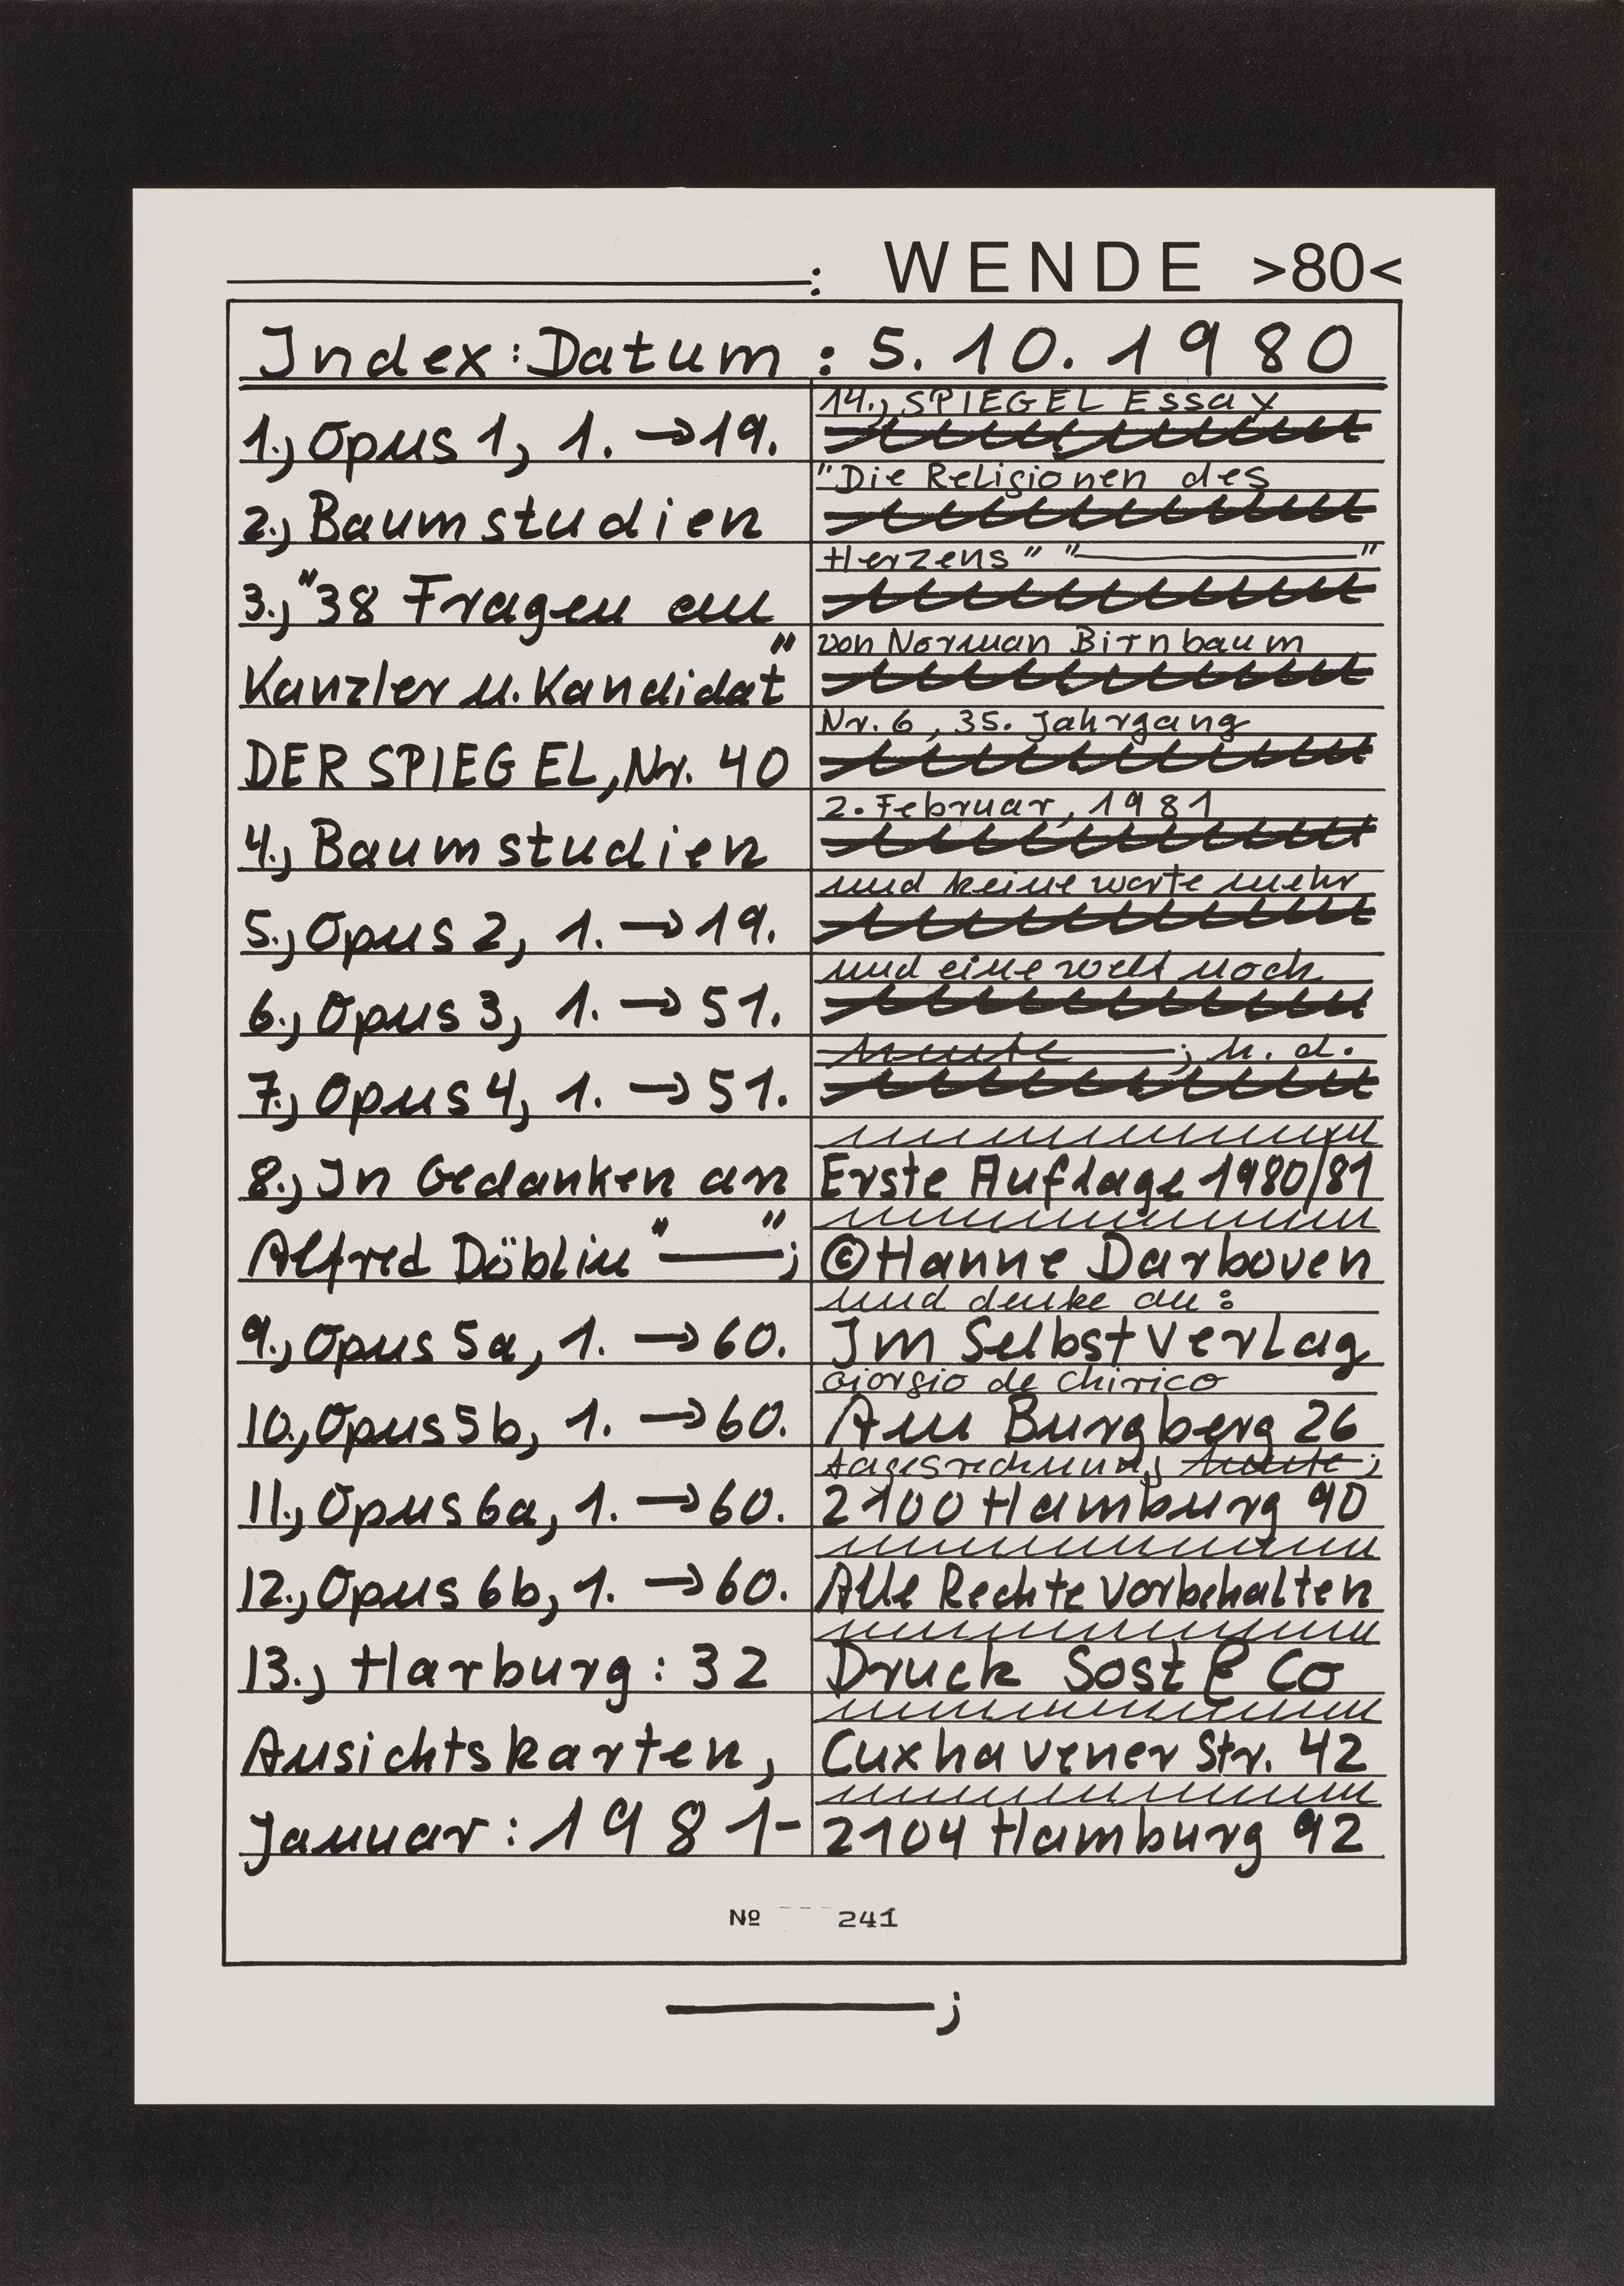 : WENDE >80<
Index: Datum : 5. 10. 1980
1., Opus 1, 1. → 19.
2., Baumstudien
3., "38 Fragen an
Kanzler u. Kandidat"
DER SPIEGEL, Nr. 40
4., Baumstudien
5., Opus 2, 1. → 19.
6., Opus 3, 1. → 51.
7., Opus 4, 1. → 51.
8., In Gedanken an
Alfred Döblin "——";
9., Opus 5a, 1. → 60.
10., Opus 5b, 1. → 60.
11., Opus 6a, 1. → 60.
12., Opus 6b, 1. → 60.
13., Harburg: 32
Ansichtskarten,
Januar: 1981-
14., SPIEGEL Essay
"Die Religionen des
Herzens" "——"
von Norman Birnbaum
Nr. 6, 35. Jahrgang
2. Februar, 1981
und keine worte mehr
und eine welt noch
heute ——; h. d.
Erste Auflage 1980/81
© Hanne Darboven
und denke an:
Im Selbstverlag
Giorgio de Chirico
Am Burgberg 26
tagesrechnung heute;
2100 Hamburg 90
Alle Rechte vorbehalten
Druck Sost & Co
Cuxhavener Str. 42
2104 Hamburg 92
№ 241
——;